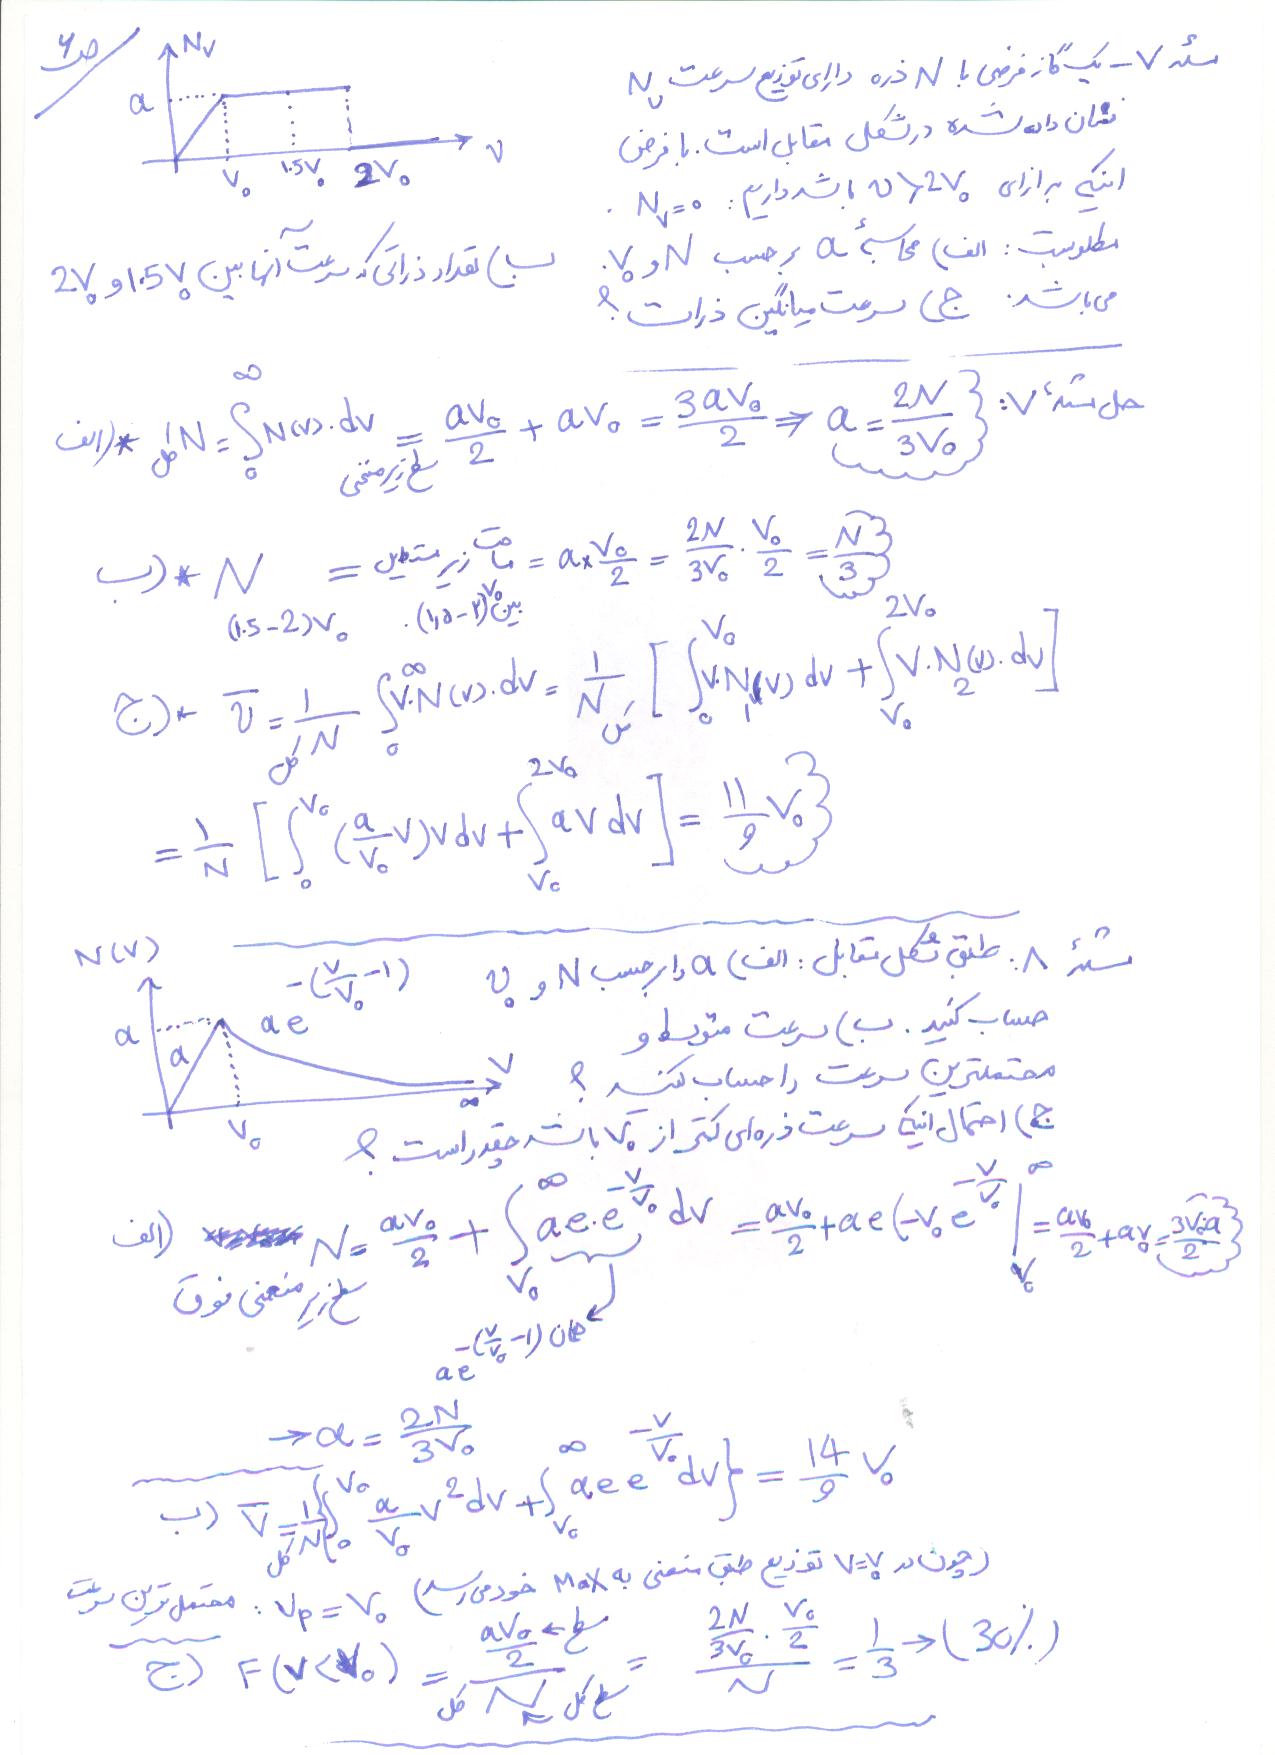 ص ۶
N_v
a
V₀ 1.5V₀ 2V₀ v
مسئله ۷ – یک گاز فرضی با N ذره دارای توزیع سرعت N_v
نشان داده شده در شکل مقابل است. با فرض
اینکه به ازای v>2V₀ باشد داریم: N_v=0 .
مطلوبست: الف) محاسبهٔ a بر حسب N و V₀. ب) تعداد ذراتی که سرعت آنها بین 1.5V₀ و 2V₀
می‌باشد. ج) سرعت میانگین ذرات؟
حل مسئلهٔ ۷:
الف)* N کل = ∫₀^∞ N(v).dv = aV₀/2 + aV₀ = 3aV₀/2 ⇒ a = 2N/3V₀
سطح زیر منحنی
ب)* N (1.5-2)V₀ = مساحت زیر مستطیل = a×V₀/2 = 2N/3V₀ · V₀/2 = N/3
بین (۱,۵-۲)V₀ .
ج)* v̄ = 1/N کل ∫₀^∞ V.N(v).dv = 1/N کل [∫₀^V₀ V.N₁(v) dv + ∫_V₀^2V₀ V.N₂(v).dv]
= 1/N [∫₀^V₀ (a/V₀ V)V dv + ∫_V₀^2V₀ aV dv] = 11/9 V₀
N(V)
a
a
ae^-(V/V₀ -1)
V
V₀ ∞
مسئلهٔ ۸: طبق شکل مقابل: الف) a را بر حسب N و v₀
حساب کنید. ب) سرعت متوسط و
محتملترین سرعت را حساب کنید؟
ج) احتمال اینکه سرعت ذره‌ای کمتر از V₀ باشد چقدر است؟
الف) N = aV₀/2 + ∫_V₀^∞ ae.e^-V/V₀ dv = aV₀/2 + ae(-V₀e^-V/V₀ |_V₀^∞ = aV₀/2 + aV₀ = 3V₀a/2
سطح زیر منحنی فوق
همان ae^-(V/V₀ -1)
→ a = 2N/3V₀
ب) V̄ = 1/N کل {∫₀^V₀ a/V₀ V² dv + ∫_V₀^∞ aee^-V/V₀ dv} = 14/9 V₀
محتمل‌ترین سرعت: V_p = V₀ (چون در V=V₀ توزیع طبق منحنی به Max خود می‌رسد)
ج) F(V<V₀) = aV₀/2 ← سطح / N کل ← سطح کل = 2N/3V₀ · V₀/2 / N = 1/3 → (30%)